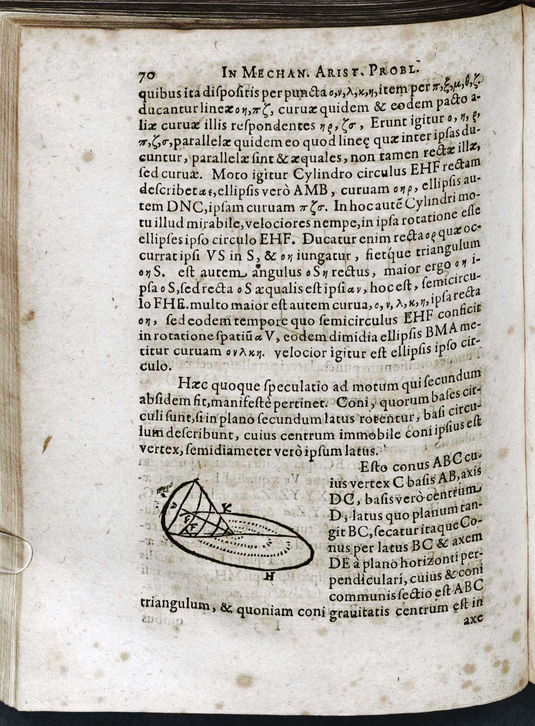 70 IN MECHAN. ARIST. PROBL.
quibus ita dispositis per puncta ο,ν,λ,κ,η, item per π,ξ,μ,θ,ζ.
ducantur lineæ οη, πζ, curuæ quidem & eodem pacto a-
liæ curuæ illis respondentes ηρ, ζσ, Erunt igitur ο, η, ρ,
π,ζ,σ, parallelæ quidem eo quod lineę quæ inter ipsas du-
cuntur, parallelæ sint & æquales, non tamen rectæ illæ,
sed curuæ. Moto igitur Cylindro circulus EHF rectam
describet αε, ellipsis verò AMB, curuam οηρ, ellipsis au-
tem DNC, ipsam curuam πζσ. In hoc autē Cylindri mo-
tu illud mirabile, velociores nempe, in ipsa rotatione esse
ellipses ipso circulo EHF. Ducatur enim recta ορ quæ oc-
currat ipsi VS in S, & οη iungatur, fietque triangulum
οηS. est autem angulus οSη rectus, maior ergo οη i-
psa οS, sed recta οS æqualis est ipsi αν, hoc est, semicircu-
lo FHE. multo maior est autem curua, ο, ν, λ, κ, η, ipsa recta
οη, sed eodem tempore quo semicirculus EHF conficit
in rotatione spatiū αV, eodem dimidia ellipsis BMA me-
titur curuam ονλκη. velocior igitur est ellipsis ipso cir-
culo.
Hæc quoque speculatio ad motum qui secundum
absidem fit, manifestè pertinet. Coni, quorum bases cir-
culi sunt, si in plano secundum latus rotentur, basi circu-
lum describunt, cuius centrum immobile coni ipsius est
vertex, semidiameter verò ipsum latus.
Esto conus ABC cu-
ius vertex C basis AB, axis
DC, basis verò centrum
D, latus quo planum tan-
git BC, secatur itaque Co-
nus per latus BC & axem
DE à plano horizonti per-
pendiculari, cuius & coni
communis sectio est ABC
triangulum, & quoniam coni grauitatis centrum est in
axe
A
D
F
K
H